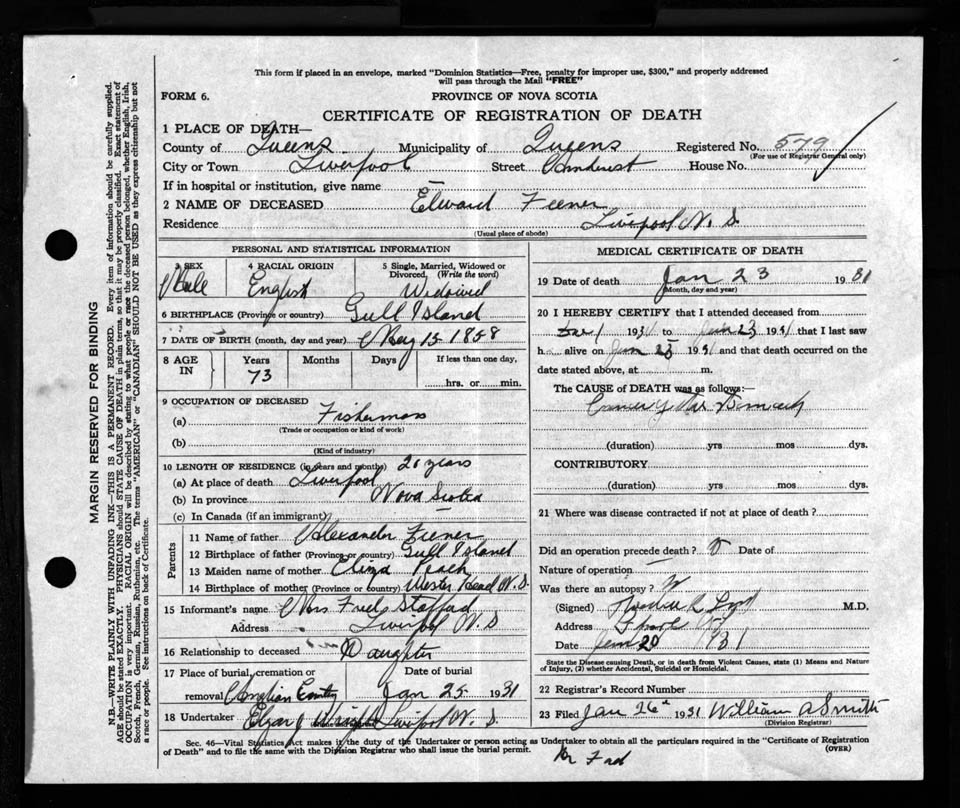 This form if placed in an envelope, marked "Dominion Statistics—Free, penalty for improper use, $300," and properly addressed
will pass through the Mail "FREE"
FORM 6.
PROVINCE OF NOVA SCOTIA
CERTIFICATE OF REGISTRATION OF DEATH
1 PLACE OF DEATH—
County of Queens Municipality of Queens Registered No. 579
(For use of Registrar General only)
City or Town Liverpool Street House No.
If in hospital or institution, give name —
2 NAME OF DECEASED Edward Feener
Residence Liverpool N. S
(Usual place of abode)
PERSONAL AND STATISTICAL INFORMATION
3 SEX 4 RACIAL ORIGIN 5 Single, Married, Widowed or
Divorced, (Write the word)
Male English Widowed
6 BIRTHPLACE (Province or country) Gull Island
7 DATE OF BIRTH (month, day and year) May 15 1858
8 AGE IN Years Months Days If less than one day,
73 hrs. or min.
9 OCCUPATION OF DECEASED
(a) Fisherman
(Trade or occupation or kind of work)
(b)
(Kind of industry)
10 LENGTH OF RESIDENCE (in years and months) 20 years
(a) At place of death Liverpool
(b) In province Nova Scotia
(c) In Canada (if an immigrant) —
Parents
11 Name of father Alexander Feener
12 Birthplace of father (Province or country) Gull Island
13 Maiden name of mother Eliza
14 Birthplace of mother (Province or country) Head N. S.
15 Informant's name Mrs Fred Stafford
Address Liverpool N. S
16 Relationship to deceased Daughter
17 Place of burial, cremation or
removal Date of burial
Jan 25 1931
18 Undertaker Liverpool N. S.
MEDICAL CERTIFICATE OF DEATH
19 Date of death Jan 23 1931
(Month, day and year)
20 I HEREBY CERTIFY that I attended deceased from
1931 to Jan 23 1931 that I last saw
h alive on Jan 23 1931 and that death occurred on the
date stated above, at m.
The CAUSE of DEATH was as follows:—
Cancer of the Stomach
(duration) yrs mos dys.
CONTRIBUTORY
(duration) yrs mos dys.
21 Where was disease contracted if not at place of death?
Did an operation precede death? Date of
Nature of operation
Was there an autopsy?
(Signed) M.D.
Address
Date Jan 1931
State the Disease causing Death, or in death from Violent Causes, state (1) Means and Nature
of Injury, (2) whether Accidental, Suicidal or Homicidal.
22 Registrar's Record Number
23 Filed Jan 26 1931 William A Smith
(Division Registrar)
Sec. 46—Vital Statistics Act makes it the duty of the Undertaker or person acting as Undertaker to obtain all the particulars required in the "Certificate of Registration
of Death" and to file the same with the Division Registrar who shall issue the burial permit.
(OVER)
MARGIN RESERVED FOR BINDING
N.B.—WRITE PLAINLY WITH UNFADING INK—THIS IS A PERMANENT RECORD. Every item of information should be carefully supplied.
AGE should be stated EXACTLY. PHYSICIANS should STATE CAUSE OF DEATH in plain terms, so that it may be properly classified. Exact statement of
OCCUPATION is very important. RACIAL ORIGIN will be described by stating to what people or race the deceased person belonged, whether English, Irish,
Scotch, French, German, Russian, Ruthenian, etc. The terms "AMERICAN" or "CANADIAN" SHOULD NOT BE USED as they express citizenship but not
a race or people. See instructions on back of Certificate.